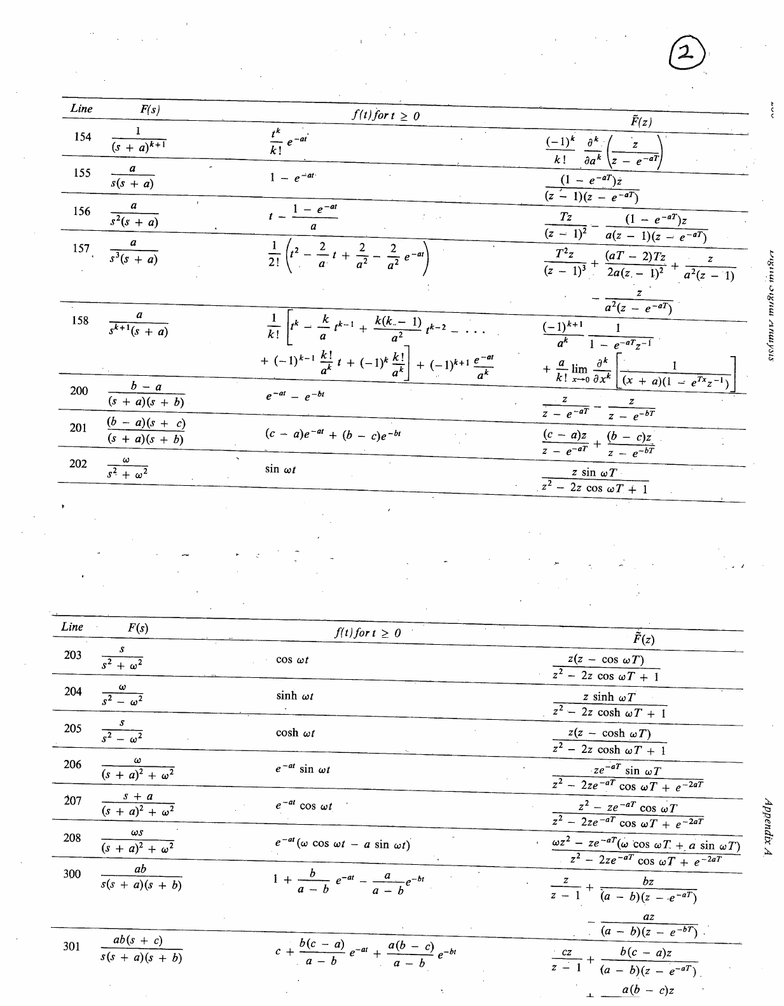 2
Line F(s) f(t) for t ≥ 0 F̃(z)
154 1/(s + a)^{k+1} t^k/k! e^{-at} (-1)^k/k! ∂^k/∂a^k (z/(z - e^{-aT}))
155 a/(s(s + a)) 1 - e^{-at} (1 - e^{-aT})z/((z - 1)(z - e^{-aT}))
156 a/(s^2(s + a)) t - (1 - e^{-at})/a Tz/(z - 1)^2 - (1 - e^{-aT})z/(a(z - 1)(z - e^{-aT}))
157 a/(s^3(s + a)) 1/2! (t^2 - 2/a t + 2/a^2 - 2/a^2 e^{-at}) T^2z/(z - 1)^3 + (aT - 2)Tz/(2a(z - 1)^2) + z/(a^2(z - 1))
- z/(a^2(z - e^{-aT}))
158 a/(s^{k+1}(s + a)) 1/k! [t^k - k/a t^{k-1} + k(k - 1)/a^2 t^{k-2} - . . . (-1)^{k+1}/a^k 1/(1 - e^{-aT}z^{-1})
+ (-1)^{k-1} k!/a^k t + (-1)^k k!/a^k] + (-1)^{k+1} e^{-at}/a^k + a/k! lim_{x→0} ∂^k/∂x^k [1/((x + a)(1 - e^{Tx}z^{-1}))]
200 (b - a)/((s + a)(s + b)) e^{-at} - e^{-bt} z/(z - e^{-aT}) - z/(z - e^{-bT})
201 (b - a)(s + c)/((s + a)(s + b)) (c - a)e^{-at} + (b - c)e^{-bt} (c - a)z/(z - e^{-aT}) + (b - c)z/(z - e^{-bT})
202 ω/(s^2 + ω^2) sin ωt z sin ωT/(z^2 - 2z cos ωT + 1)
Line F(s) f(t) for t ≥ 0 F̃(z)
203 s/(s^2 + ω^2) cos ωt z(z - cos ωT)/(z^2 - 2z cos ωT + 1)
204 ω/(s^2 - ω^2) sinh ωt z sinh ωT/(z^2 - 2z cosh ωT + 1)
205 s/(s^2 - ω^2) cosh ωt z(z - cosh ωT)/(z^2 - 2z cosh ωT + 1)
206 ω/((s + a)^2 + ω^2) e^{-at} sin ωt ze^{-aT} sin ωT/(z^2 - 2ze^{-aT} cos ωT + e^{-2aT})
207 (s + a)/((s + a)^2 + ω^2) e^{-at} cos ωt (z^2 - ze^{-aT} cos ωT)/(z^2 - 2ze^{-aT} cos ωT + e^{-2aT})
208 ωs/((s + a)^2 + ω^2) e^{-at}(ω cos ωt - a sin ωt) (ωz^2 - ze^{-aT}(ω cos ωT + a sin ωT))/(z^2 - 2ze^{-aT} cos ωT + e^{-2aT})
300 ab/(s(s + a)(s + b)) 1 + b/(a - b) e^{-at} - a/(a - b) e^{-bt} z/(z - 1) + bz/((a - b)(z - e^{-aT}))
- az/((a - b)(z - e^{-bT}))
301 ab(s + c)/(s(s + a)(s + b)) c + b(c - a)/(a - b) e^{-at} + a(b - c)/(a - b) e^{-bt} cz/(z - 1) + b(c - a)z/((a - b)(z - e^{-aT}))
+ a(b - c)z
Signal Analysis
Appendix A